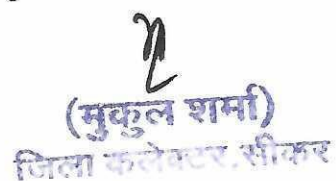 (मुकुल शर्मा)
जिला कलेक्टर.सीकर